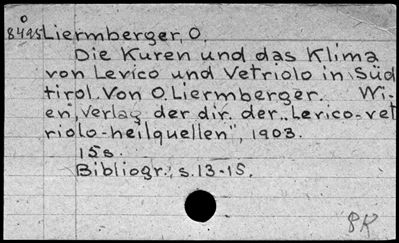 8495 Liermberger, O.
Die Kuren und das Klima
von Levico und Vetriolo in Süd
tirol. Von O. Liermberger. Wi-
en, Verlag der dir. der „Levico-vet
riolo-heilquellen", 1903.
15 s.
Bibliogr., s. 13-15.